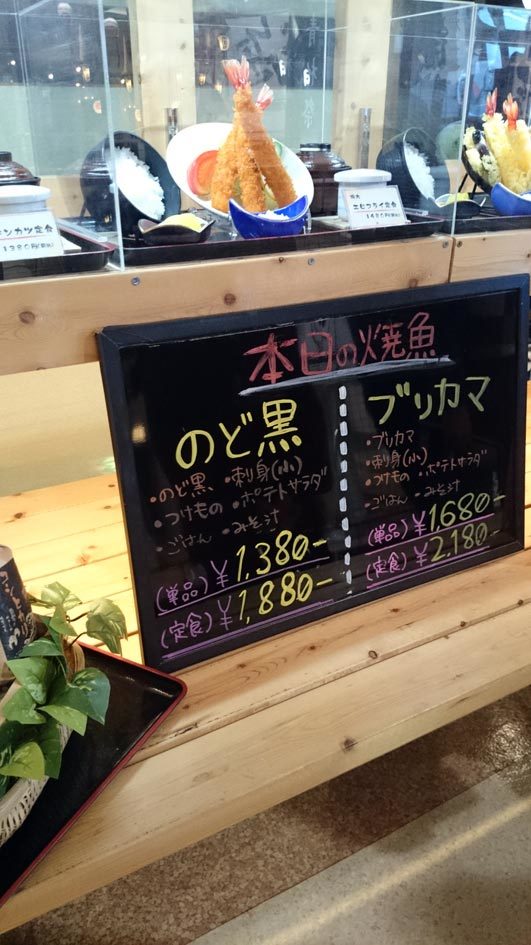 ンカツ定食
1380円(税込)
特大
エビフライ定食
1480円(税込)
本日の焼魚
のど黒
・のど黒 ・刺身(小)
・つけもの ・ポテトサラダ
・ごはん ・みそ汁
(単品)¥1,380-
(定食)¥1,880-
ブリカマ
・ブリカマ
・刺身(小)
・つけもの ・ポテトサラダ
・ごはん ・みそ汁
(単品)¥1,680-
(定食)¥2,180-